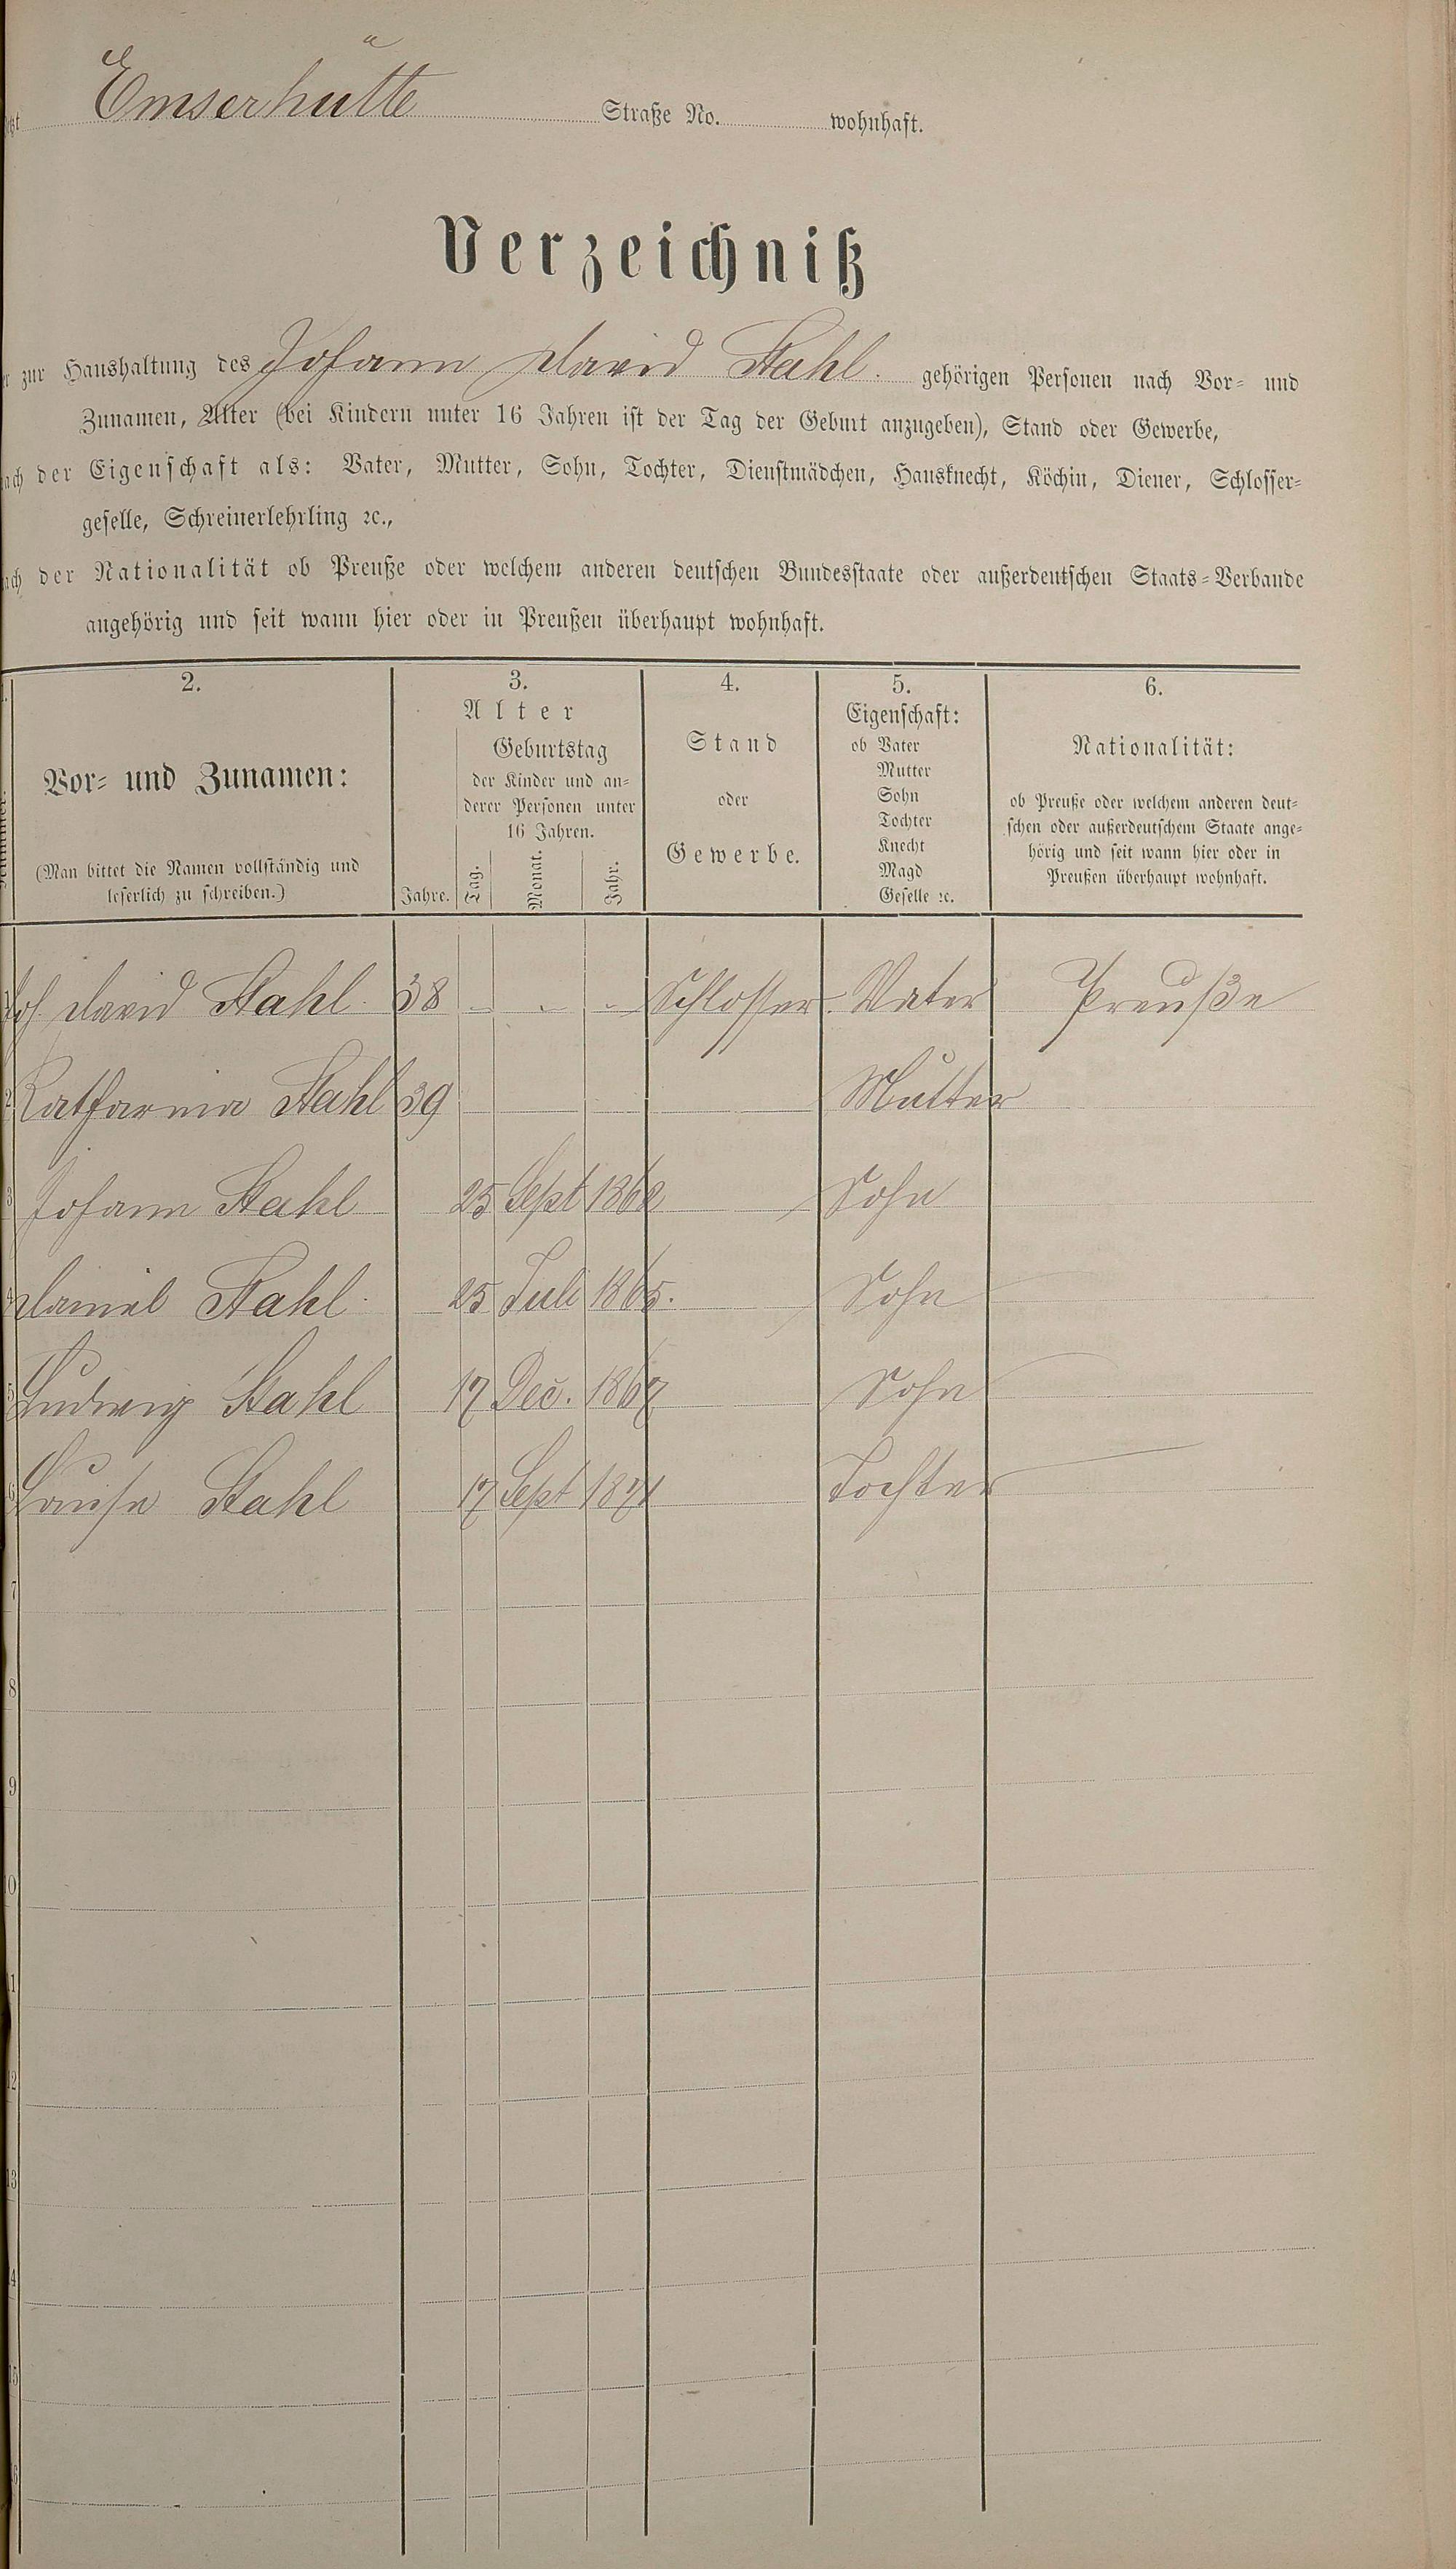 Emserhütte Straße No. wohnhaft.
Verzeichniß
zur Haushaltung des Johann David Stahl. gehörigen Personen nach Vor- und
Zunamen, Alter (bei Kindern unter 16 Jahren ist der Tag der Geburt anzugeben), Stand oder Gewerbe,
der Eigenschaft als: Vater, Mutter, Sohn, Tochter, Dienstmädchen, Hausknecht, Köchin, Diener, Schlosser-
geselle, Schreinerlehrling ꝛc.,
der Nationalität ob Preuße oder welchem anderen deutschen Bundesstaate oder außerdeutschen Staats-Verbande
angehörig und seit wann hier oder in Preußen überhaupt wohnhaft.
2. 3. 4. 5. 6.
Vor- und Zunamen:
(Man bittet die Namen vollständig und
leserlich zu schreiben.)
Alter
Geburtstag
der Kinder und an-
derer Personen unter
16 Jahren.
Jahre. Tag. Monat. Jahr.
Stand
oder
Gewerbe.
Eigenschaft:
ob Vater
Mutter
Sohn
Tochter
Knecht
Magd
Geselle ꝛc.
Nationalität:
ob Preuße oder welchem anderen deut-
schen oder außerdeutschem Staate ange-
hörig und seit wann hier oder in
Preußen überhaupt wohnhaft.
Joh David Stahl. 38 - - - Schlosser. Vater Preuße
2 Katharina Stahl 39 Mutter
3 Johann Stahl 25 Sept 1862 Sohn
4 Daniel Stahl. 25 Juli 1865. Sohn
5 Ludwig Stahl 17 Dec. 1867 Sohn
6 Louise Stahl 17 Sept 1871 Tochter
7
8
9
10
11
12
13
14
15
16